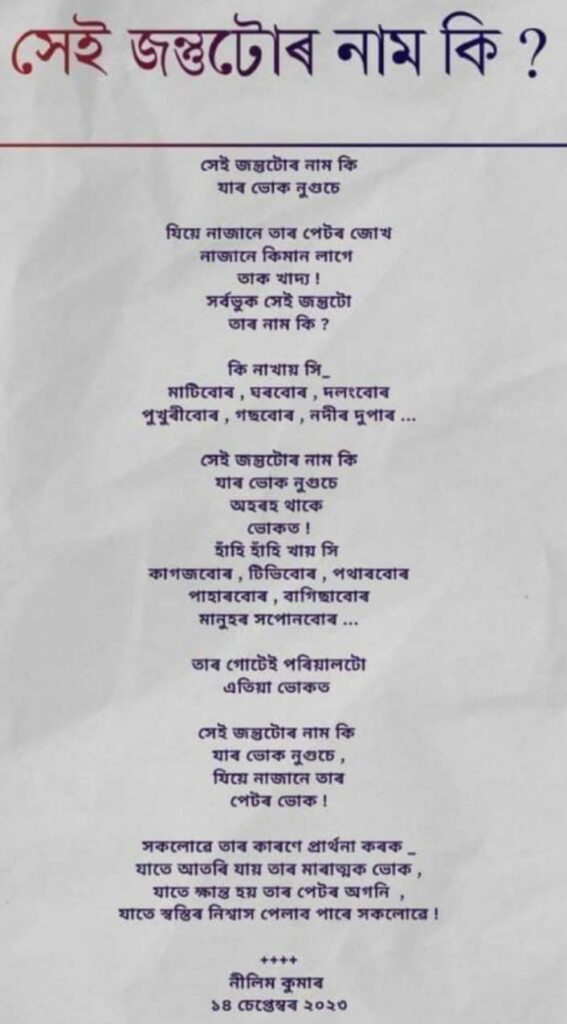 সেই জন্তুটোৰ নাম কি ?
সেই জন্তুটোৰ নাম কি
যাৰ ভোক নুগুচে
যিয়ে নাজানে তাৰ পেটৰ জোখ
নাজানে কিমান লাগে
তাক খাদ্য !
সৰ্বভুক সেই জন্তুটো
তাৰ নাম কি ?
কি নাখায় সি_
মাটিবোৰ , ঘৰবোৰ , দলংবোৰ
পুখুৰীবোৰ , গছবোৰ , নদীৰ দুপাৰ ...
সেই জন্তুটোৰ নাম কি
যাৰ ভোক নুগুচে
অহৰহ থাকে
ভোকত !
হাঁহি হাঁহি খায় সি
কাগজবোৰ , টিভিবোৰ , পথাৰবোৰ
পাহাৰবোৰ , বাগিছাবোৰ
মানুহৰ সপোনবোৰ ...
তাৰ গোটেই পৰিয়ালটো
এতিয়া ভোকত
সেই জন্তুটোৰ নাম কি
যাৰ ভোক নুগুচে ,
যিয়ে নাজানে তাৰ
পেটৰ ভোক !
সকলোৱে তাৰ কাৰণে প্ৰাৰ্থনা কৰক _
যাতে আতৰি যায় তাৰ মাৰাত্মক ভোক ,
যাতে ক্ষান্ত হয় তাৰ পেটৰ অগনি ,
যাতে স্বস্তিৰ নিশ্বাস পেলাব পাৰে সকলোৱে !
++++
নীলিম কুমাৰ
১৪ চেপ্তেম্বৰ ২০২৩